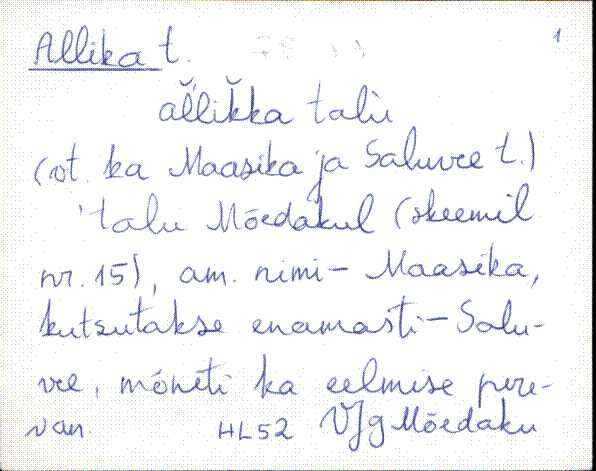 Allika t.
1
al̆likka talu
(vt. ka Maasika ja Saluvee t.)
'talu Mõedakul (skeemil
nr. 15), am. nimi – Maasika,
kutsutakse enamasti – Salu-
vee, mõneti ka eelmise pere-
van.
HL52 VJg Mõedaku